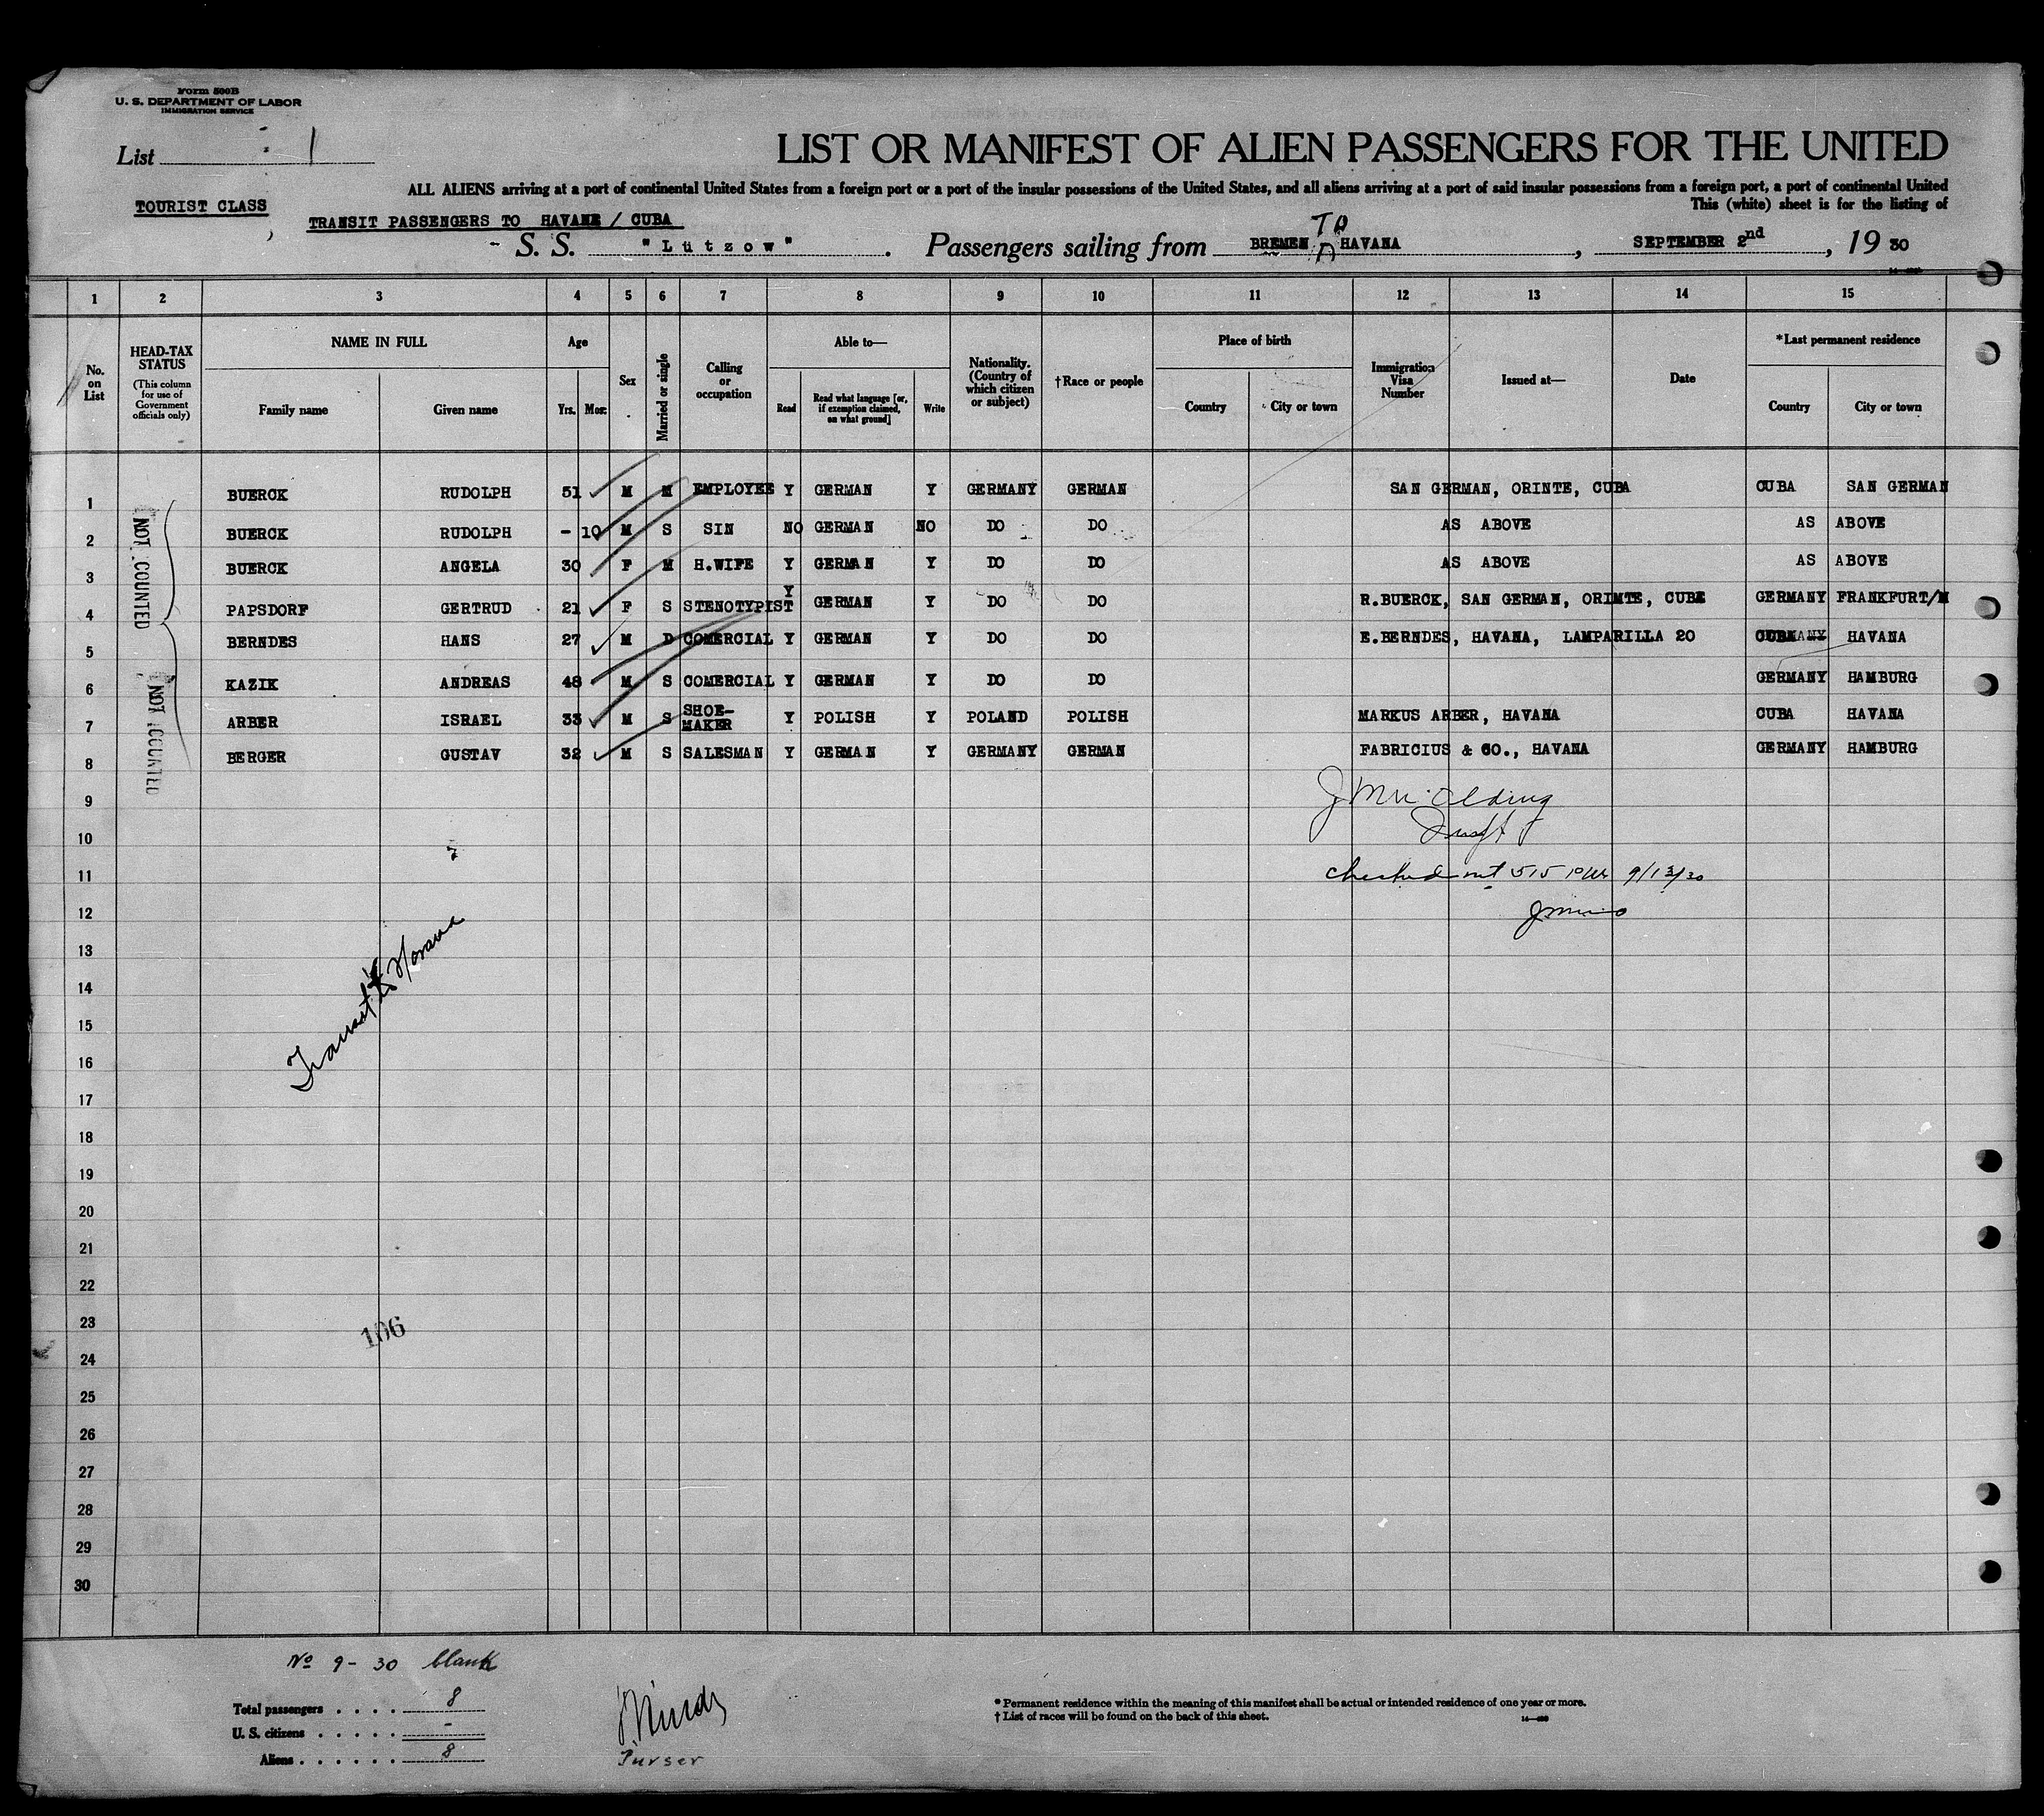 Form 500B
U. S. DEPARTMENT OF LABOR
IMMIGRATION SERVICE
List 1
LIST OR MANIFEST OF ALIEN PASSENGERS FOR THE UNITED
ALL ALIENS arriving at a port of continental United States from a foreign port or a port of the insular possessions of the United States, and all aliens arriving at a port of said insular possessions from a foreign port, a port of continental United
TOURIST CLASS
This (white) sheet is for the listing of
TRANSIT PASSENGERS TO HAVANE / CUBA
S. S. "Lützow". Passengers sailing from BREMEN TO HAVANA, SEPTEMBER 2nd, 19 30
1 2 3 4 5 6 7 8 9 10 11 12 13 14 15
No. on List
HEAD-TAX STATUS
(This column for use of Government officials only)
NAME IN FULL
Family name Given name
Age
Yrs. Mos.
Sex
Married or single
Calling or occupation
Able to—
Read
Read what language [or, if exemption claimed, on what ground]
Write
Nationality. (Country of which citizen or subject)
†Race or people
Place of birth
Country City or town
Immigration Visa Number
Issued at—
Date
*Last permanent residence
Country City or town
1 BUERCK RUDOLPH 51 M M EMPLOYEE Y GERMAN Y GERMANY GERMAN SAN GERMAN, ORINTE, CUBA CUBA SAN GERMAN
2 BUERCK RUDOLPH - 10 M S SIN NO GERMAN NO DO DO AS ABOVE AS ABOVE
3 BUERCK ANGELA 30 F M H.WIFE Y GERMAN Y DO DO AS ABOVE AS ABOVE
4 PAPSDORF GERTRUD 21 F S STENOTYPIST Y GERMAN Y DO DO R.BUERCK, SAN GERMAN, ORINTE, CUBA GERMANY FRANKFURT/M
5 BERNDES HANS 27 M D COMERCIAL Y GERMAN Y DO DO E.BERNDES, HAVANA, LAMPARILLA 20 CUBA HAVANA
6 KAZIK ANDREAS 48 M S COMERCIAL Y GERMAN Y DO DO GERMANY HAMBURG
7 ARBER ISRAEL 33 M S SHOE-MAKER Y POLISH Y POLAND POLISH MARKUS ARBER, HAVANA CUBA HAVANA
8 BERGER GUSTAV 32 M S SALESMAN Y GERMAN Y GERMANY GERMAN FABRICIUS & CO., HAVANA GERMANY HAMBURG
NOT COUNTED
NOT COUNTED
9
10
11
12
13
14
15
16
17
18
19
20
21
22
23
24
25
26
27
28
29
30
Checked out 515 PM 9/13/30
Transit to Havana
106
No 9-30 blank
Total passengers . . . . 8
U. S. citizens . . . . . -
Aliens . . . . . . 8
Purser
* Permanent residence within the meaning of this manifest shall be actual or intended residence of one year or more.
† List of races will be found on the back of this sheet.